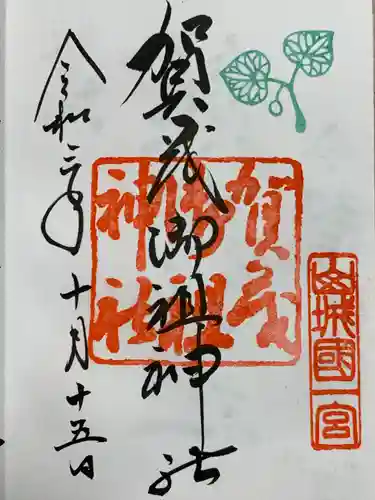 山城國一宮
賀茂御祖神社
賀茂御祖神社
令和三年十月十五日